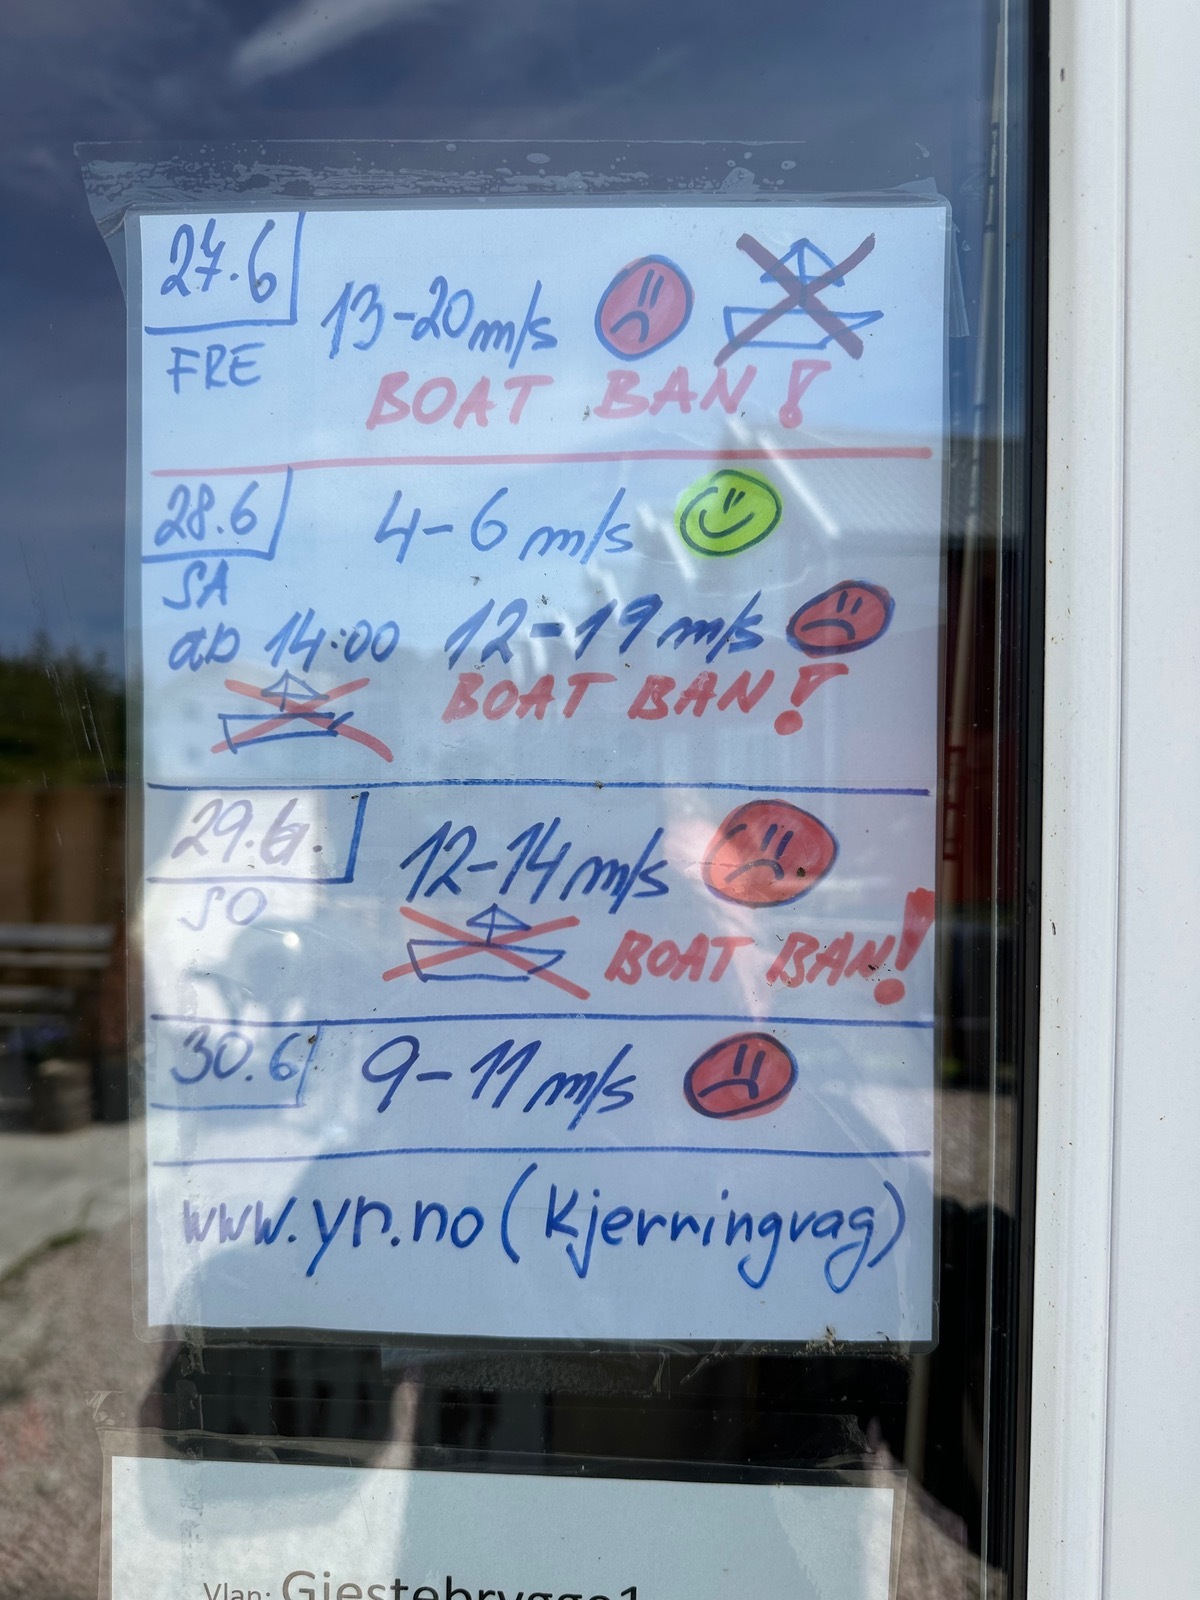 27.6
FRE
13-20 m/s
BOAT BAN!
28.6
SA
4-6 m/s
ab 14:00 12-19 m/s
BOAT BAN!
29.6.
SO
12-14 m/s
BOAT BAN!
30.6
9-11 m/s
www.yr.no (Kjerringvag)
Vlan: Gjestebrygge1